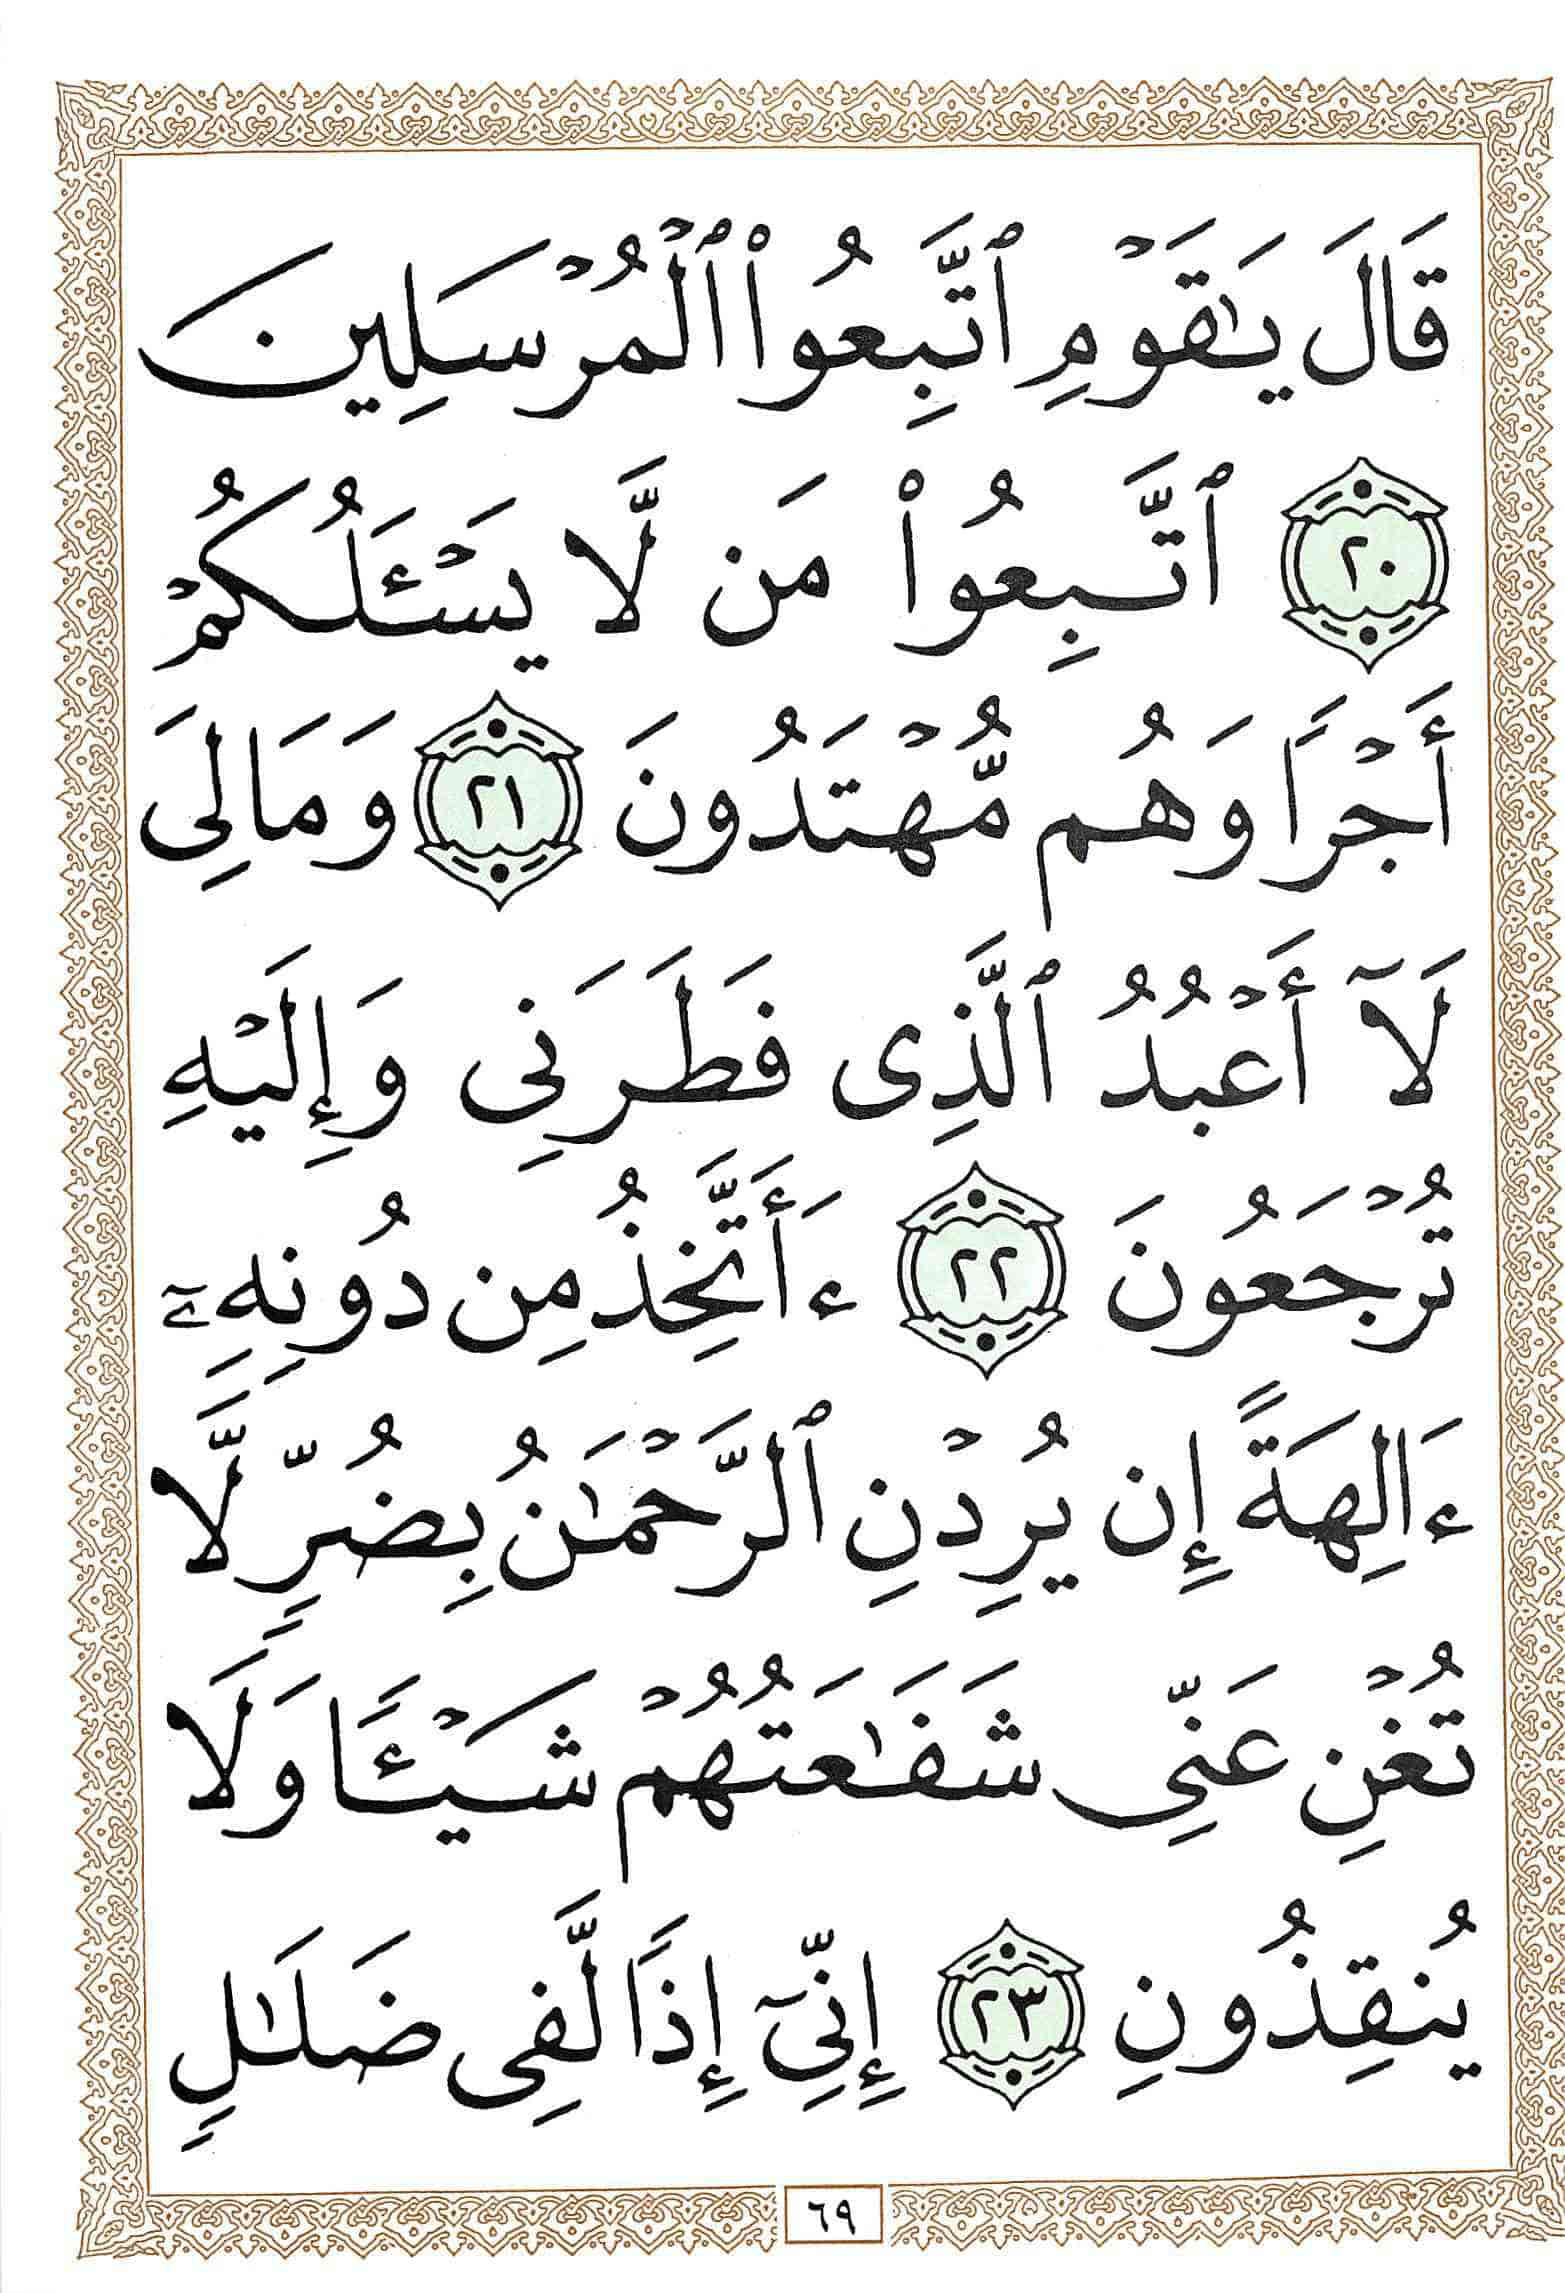 قَالَ يَٰقَوْمِ ٱتَّبِعُوا۟ ٱلْمُرْسَلِينَ
٢٠ ٱتَّبِعُوا۟ مَن لَّا يَسْـَٔلُكُمْ
أَجْرًا وَهُم مُّهْتَدُونَ ٢١ وَمَا لِىَ
لَآ أَعْبُدُ ٱلَّذِى فَطَرَنِى وَإِلَيْهِ
تُرْجَعُونَ ٢٢ ءَأَتَّخِذُ مِن دُونِهِۦٓ
ءَالِهَةً إِن يُرِدْنِ ٱلرَّحْمَٰنُ بِضُرٍّ لَّا
تُغْنِ عَنِّى شَفَٰعَتُهُمْ شَيْـًٔا وَلَا
يُنقِذُونِ ٢٣ إِنِّىٓ إِذًا لَّفِى ضَلَٰلٍ
٦٩